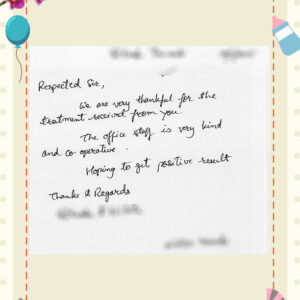 Respected Sir,
We are very thankful for the
treatment received from you.
The office staff is very kind
and co-operative.
Hoping to get positive result
Thanks & Regards